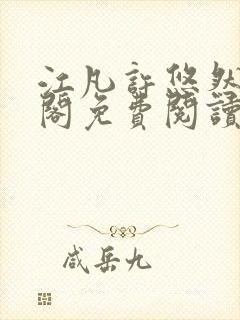 江凡許悠然
閣免費閱讀
咸岳九